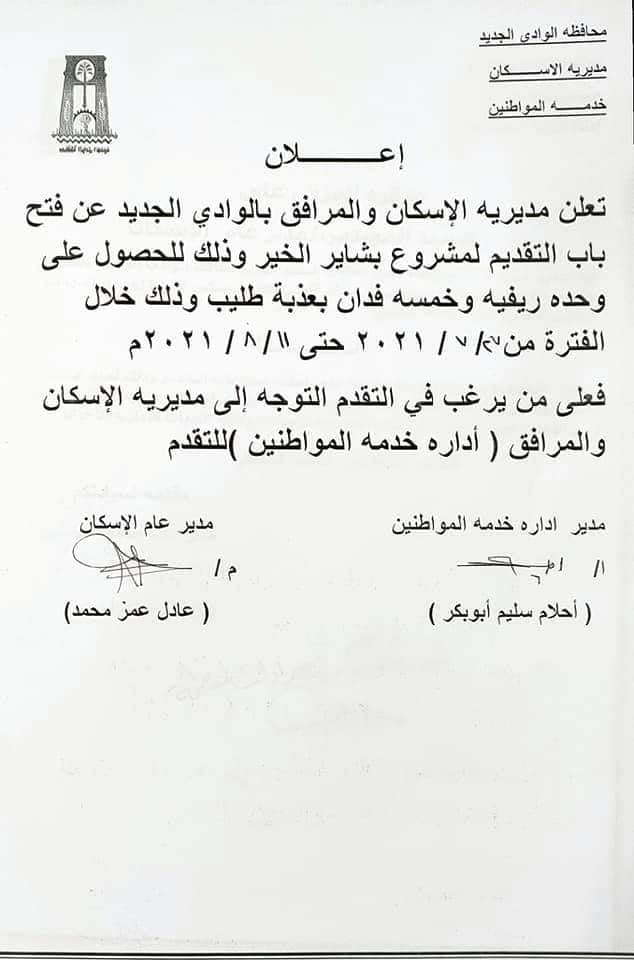 محافظه الوادى الجديد
مديريه الاســكان
خدمــه المواطنين
إعـــــلان
تعلن مديريه الإسكان والمرافق بالوادي الجديد عن فتح
باب التقديم لمشروع بشاير الخير وذلك للحصول على
وحده ريفيه وخمسه فدان بعذبة طليب وذلك خلال
الفترة من ٢٧/ ٧/ ٢٠٢١ حتى ١١/ ٨/ ٢٠٢١م
فعلى من يرغب في التقدم التوجه إلى مديريه الإسكان
والمرافق ( أداره خدمه المواطنين )للتقدم
مدير اداره خدمه المواطنين
مدير عام الإسكان
ا/
م /
( أحلام سليم أبوبكر )
( عادل عمز محمد)